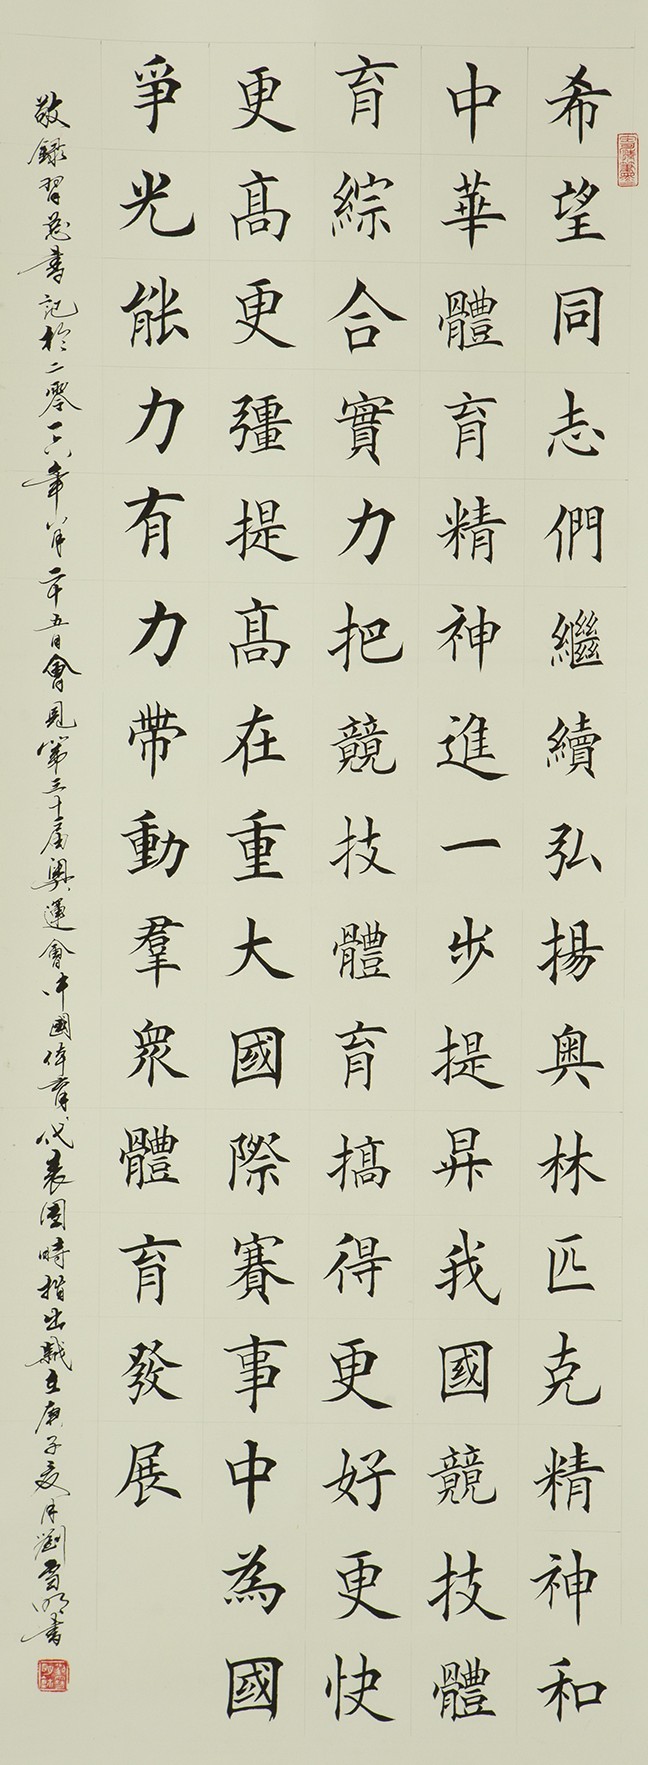 希望同志們繼續弘揚奧林匹克精神和
中華體育精神進一步提昇我國競技體
育綜合實力把競技體育搞得更好更快
更高更彊提高在重大國際賽事中為國
爭光能力有力帶動羣眾體育發展
敬録習總書記於二零一六年八月二十五日會見第三十一届奧運會中國体育代表团時指出 歲在庚子夏月劉雪明書